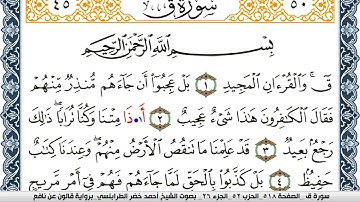 ٤٥ سورة ق ٥٠
بِسْمِ اللَّهِ الرَّحْمَٰنِ الرَّحِيمِ
قٓ وَالْقُرْءَانِ الْمَجِيدِ ١ بَلْ عَجِبُوٓا أَن جَآءَهُم مُّنذِرٌ مِّنْهُمْ
فَقَالَ الْكَٰفِرُونَ هَٰذَا شَيْءٌ عَجِيبٌ ٢ أَ.ذَا مِتْنَا وَكُنَّا تُرَابًا ذَٰلِكَ
رَجْعٌ بَعِيدٌ ٣ قَدْ عَلِمْنَا مَا تَنقُصُ الْأَرْضُ مِنْهُمْ وَعِندَنَا كِتَٰبٌ
حَفِيظٌ ٤ بَلْ كَذَّبُوا بِالْحَقِّ لَمَّا جَآءَهُمْ فَهُمْ فِىٓ أَمْرٍ مَّرِيجٍ
سورة ق _ الصفحة ٥١٨ _ الحزب ٥٢ _ الجزء ٢٦ _ بصوت الشيخ أحمد خضر الطرابلسي _ برواية قالون عن نافع